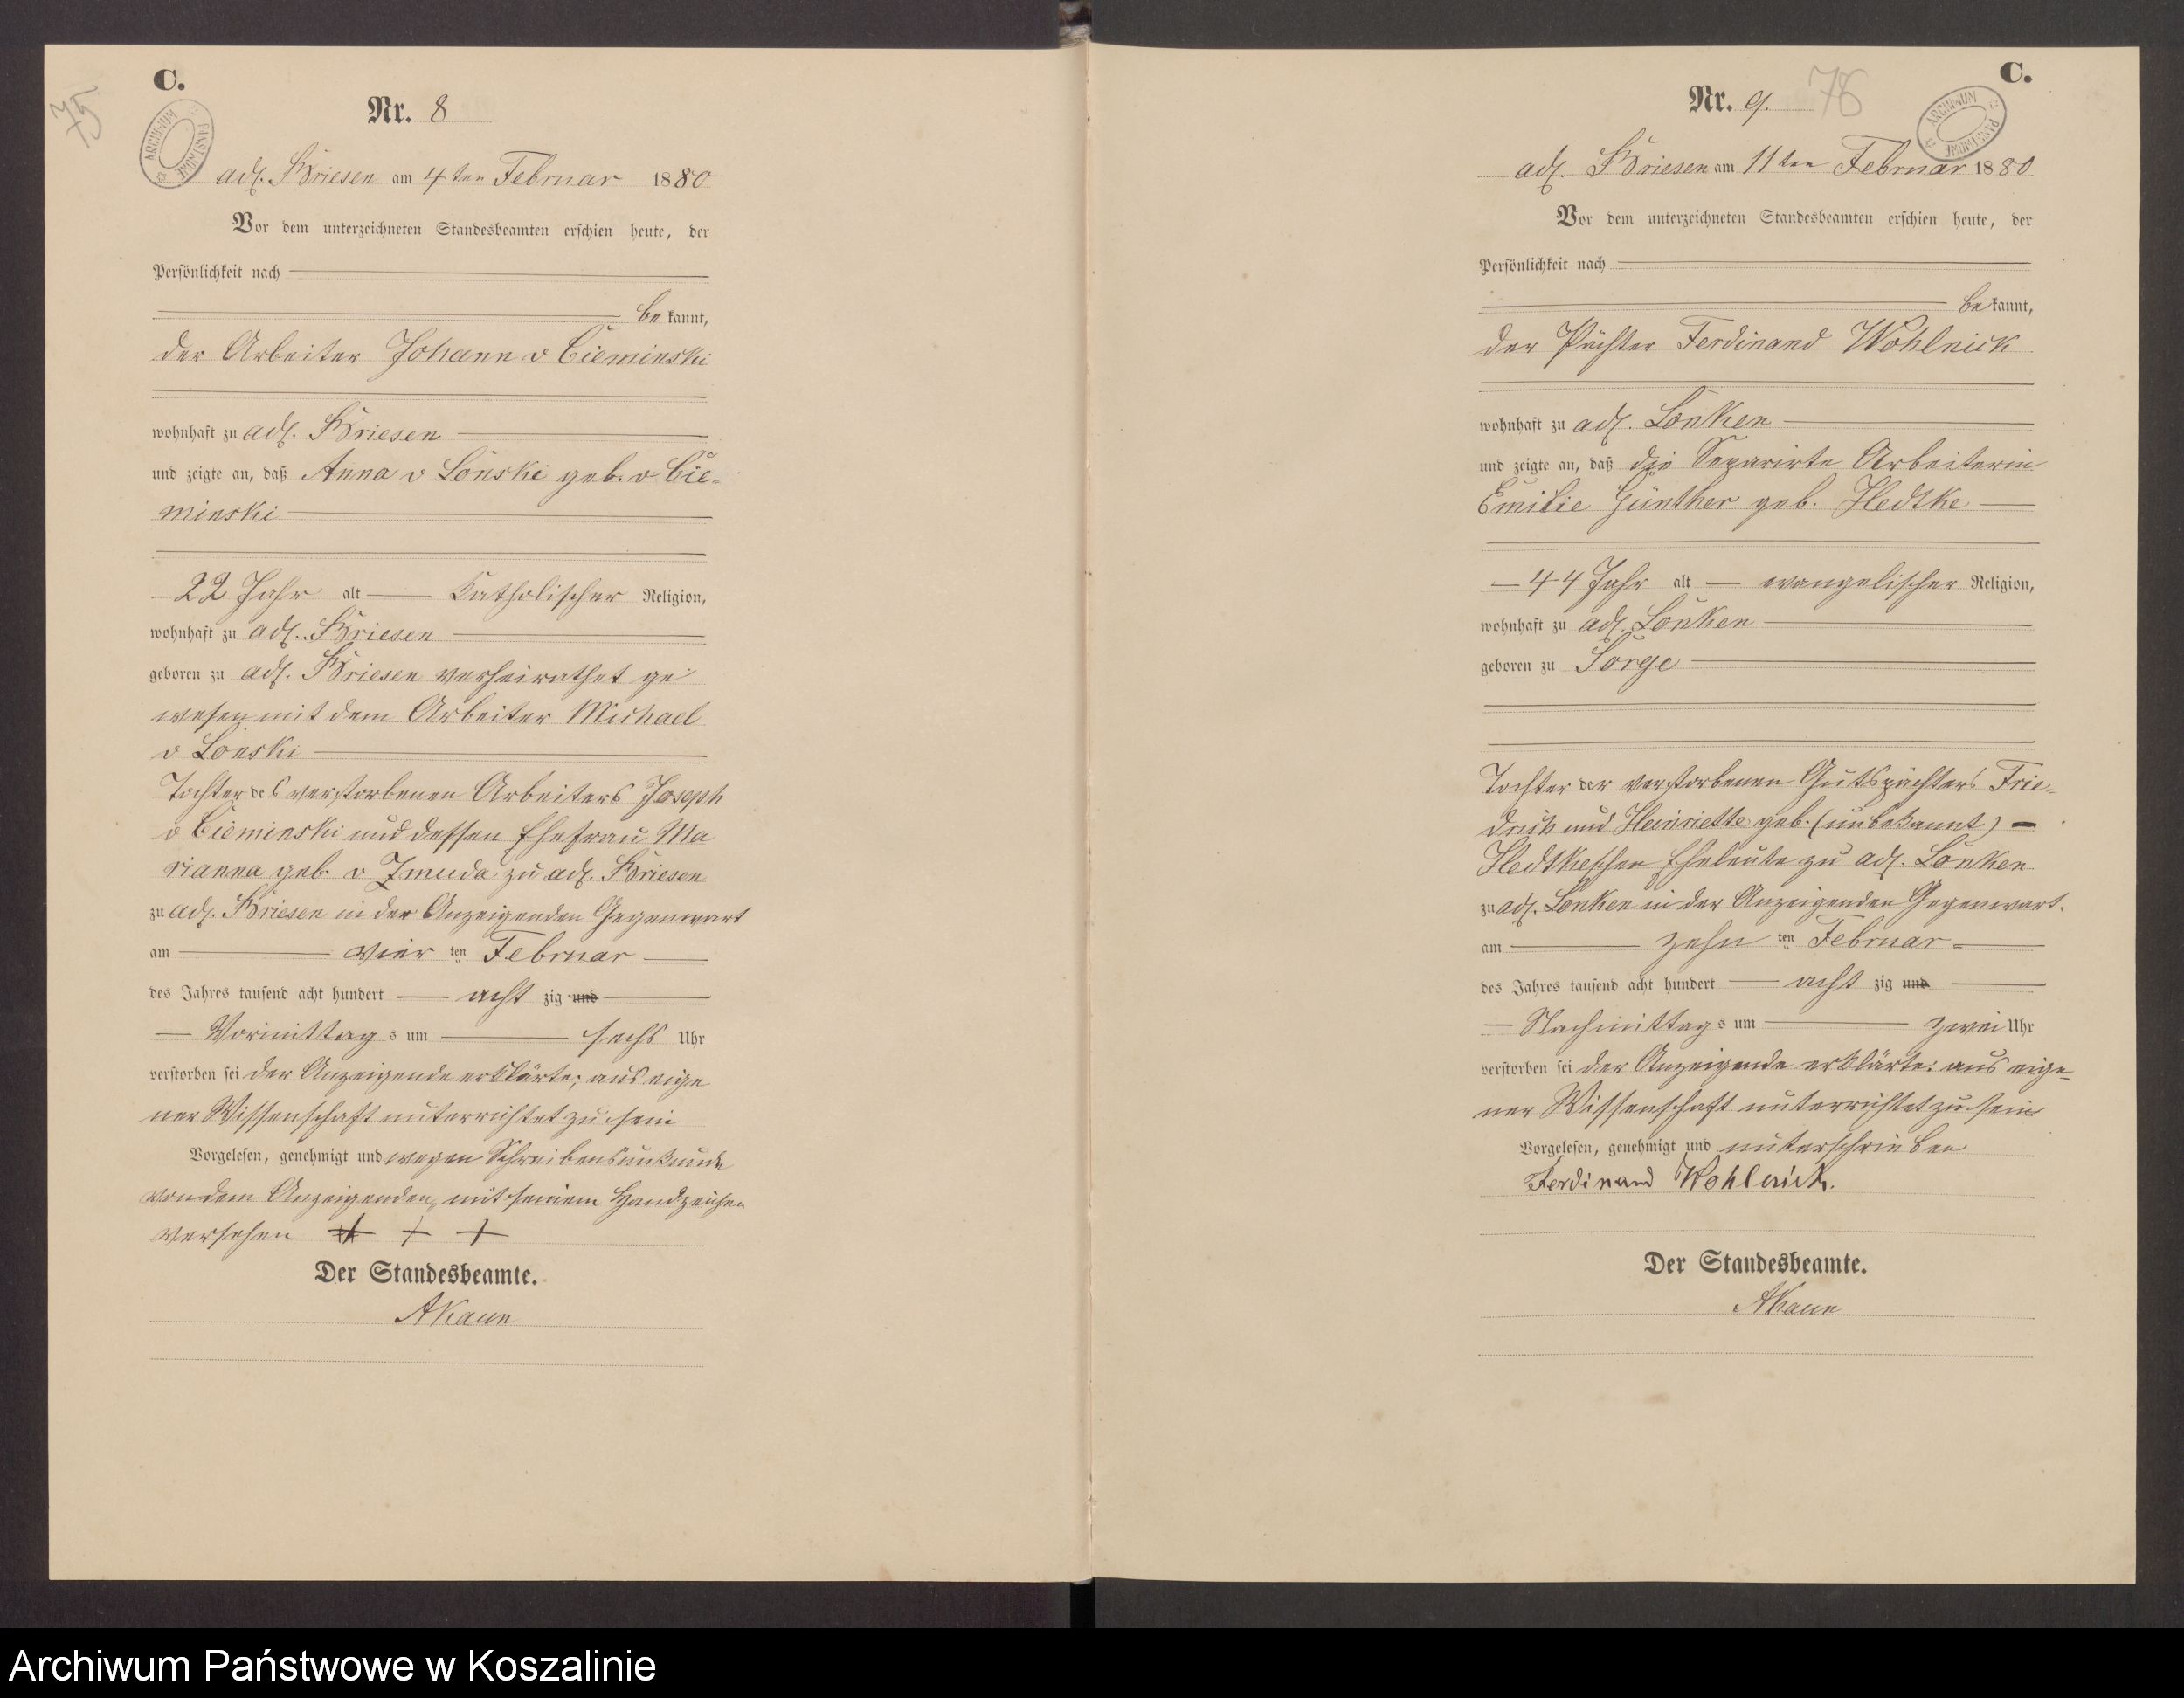 C.
75
Nr. 8
ARCHIWUM PAŃSTWOWE
adl. Briesen am 4ten Februar 1880
Vor dem unterzeichneten Standesbeamten erschien heute, der
Persönlichkeit nach
be kannt,
der Arbeiter Johann v Cieminski
wohnhaft zu adl. Briesen
und zeigte an, daß Anna v Lonski geb. v Cie-
minski
22 Jahr alt katholischer Religion,
wohnhaft zu adl. Briesen
geboren zu adl. Briesen verheirathet ge
wesen mit dem Arbeiter Michael
v Lonski
Tochter des verstorbenen Arbeiters Joseph
v Cieminski und dessen Ehefrau Ma
rianna geb. v Zmuda zu adl. Briesen
zu adl. Briesen in der Anzeigenden Gegenwart
am vier ten Februar
des Jahres tausend acht hundert acht zig und
Vormittag s um sechs Uhr
verstorben sei der Anzeigende erklärte; aus eige
ner Wissenschaft unterrichtet zu sein
Vorgelesen, genehmigt und wegen Schreibensunkunde
von dem Anzeigenden, mit seinem Handzeichen
versehen + + +
Der Standesbeamte.
AKaun
C.
Nr. 9. 76
ARCHIWUM PAŃSTWOWE
adl. Briesen am 11ten Februar 1880
Vor dem unterzeichneten Standesbeamten erschien heute, der
Persönlichkeit nach
be kannt,
der Pächter Ferdinand Wohlnick
wohnhaft zu adl. Lonken
und zeigte an, daß die Separirte Arbeiterin
Emilie Günther geb. Hedtke
44 Jahr alt evangelischer Religion,
wohnhaft zu adl. Lonken
geboren zu Sorge
Tochter der verstorbenen Gutspächters Frie-
drich und Heinriette geb. (unbekannt)
Hedtkeschen Eheleute zu adl. Lonken
zu adl. Lonken in der Anzeigenden Gegenwart.
am zehn ten Februar
des Jahres tausend acht hundert acht zig und
Nachmittag s um zwei Uhr
verstorben sei der Anzeigende erklärte: aus eige-
ner Wissenschaft unterrichtet zu sein
Vorgelesen, genehmigt und unterschrieben
Ferdinand Wohlnick.
Der Standesbeamte.
AKaun
Archiwum Państwowe w Koszalinie